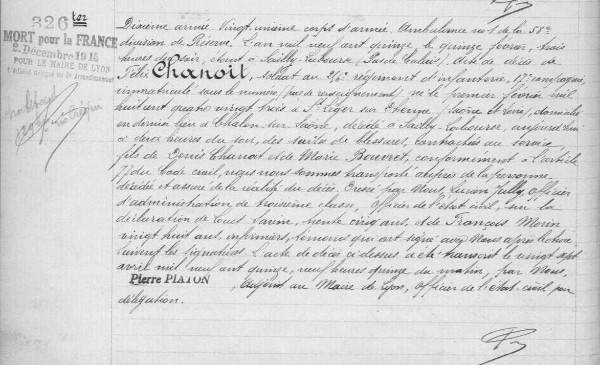 326 ter
MORT pour la FRANCE
2. Décembre 1914
POUR LE MAIRE DE LYON
L'Adjoint délégué de
Dixième armée. Vingt unième corps d'armée. Ambulance no 1 de la 58e
division de Réserve. L'an mil neuf cent quinze, le quinze février, trois
heures du soir, étant à Sailly-Labourse (Pas de Calais). Acte de décès de
Félix Chanoit, soldat au régiment d'infanterie, 17e compagnie,
immatriculé sous le numéro (pas de renseignements) né le premier février mil
huit cent quatre vingt trois à St Léger sur Dheune (Saône et Loire), domicilié
en dernier lieu à Chalon sur Saône, décédé à Sailly Labourse, aujourd'hui
à deux heures du soir, des suites de blessures, contractées au service
fils de Denis Chanoit et de Marie Bouveret, conformément à l'article
77 du Code civil, nous nous sommes transporté auprès de la personne
décédée et assuré de la réalité du décès. Dressé par Nous, Lucien Jully, officier
d'administration de troisième classe, officier de l'état civil, sur la
déclaration de Louis Savin, trente cinq ans, et de François Morin
vingt huit ans, infirmiers, témoins qui ont signé avec Nous après lecture.
Suivent les signatures. L'acte de décès ci dessus a été transcrit le vingt sept
avril mil neuf cent quinze, neuf heures quinze du matin, par Nous,
Pierre PIATON, Adjoint au Maire de Lyon, Officier de l'état-civil par
délégation.